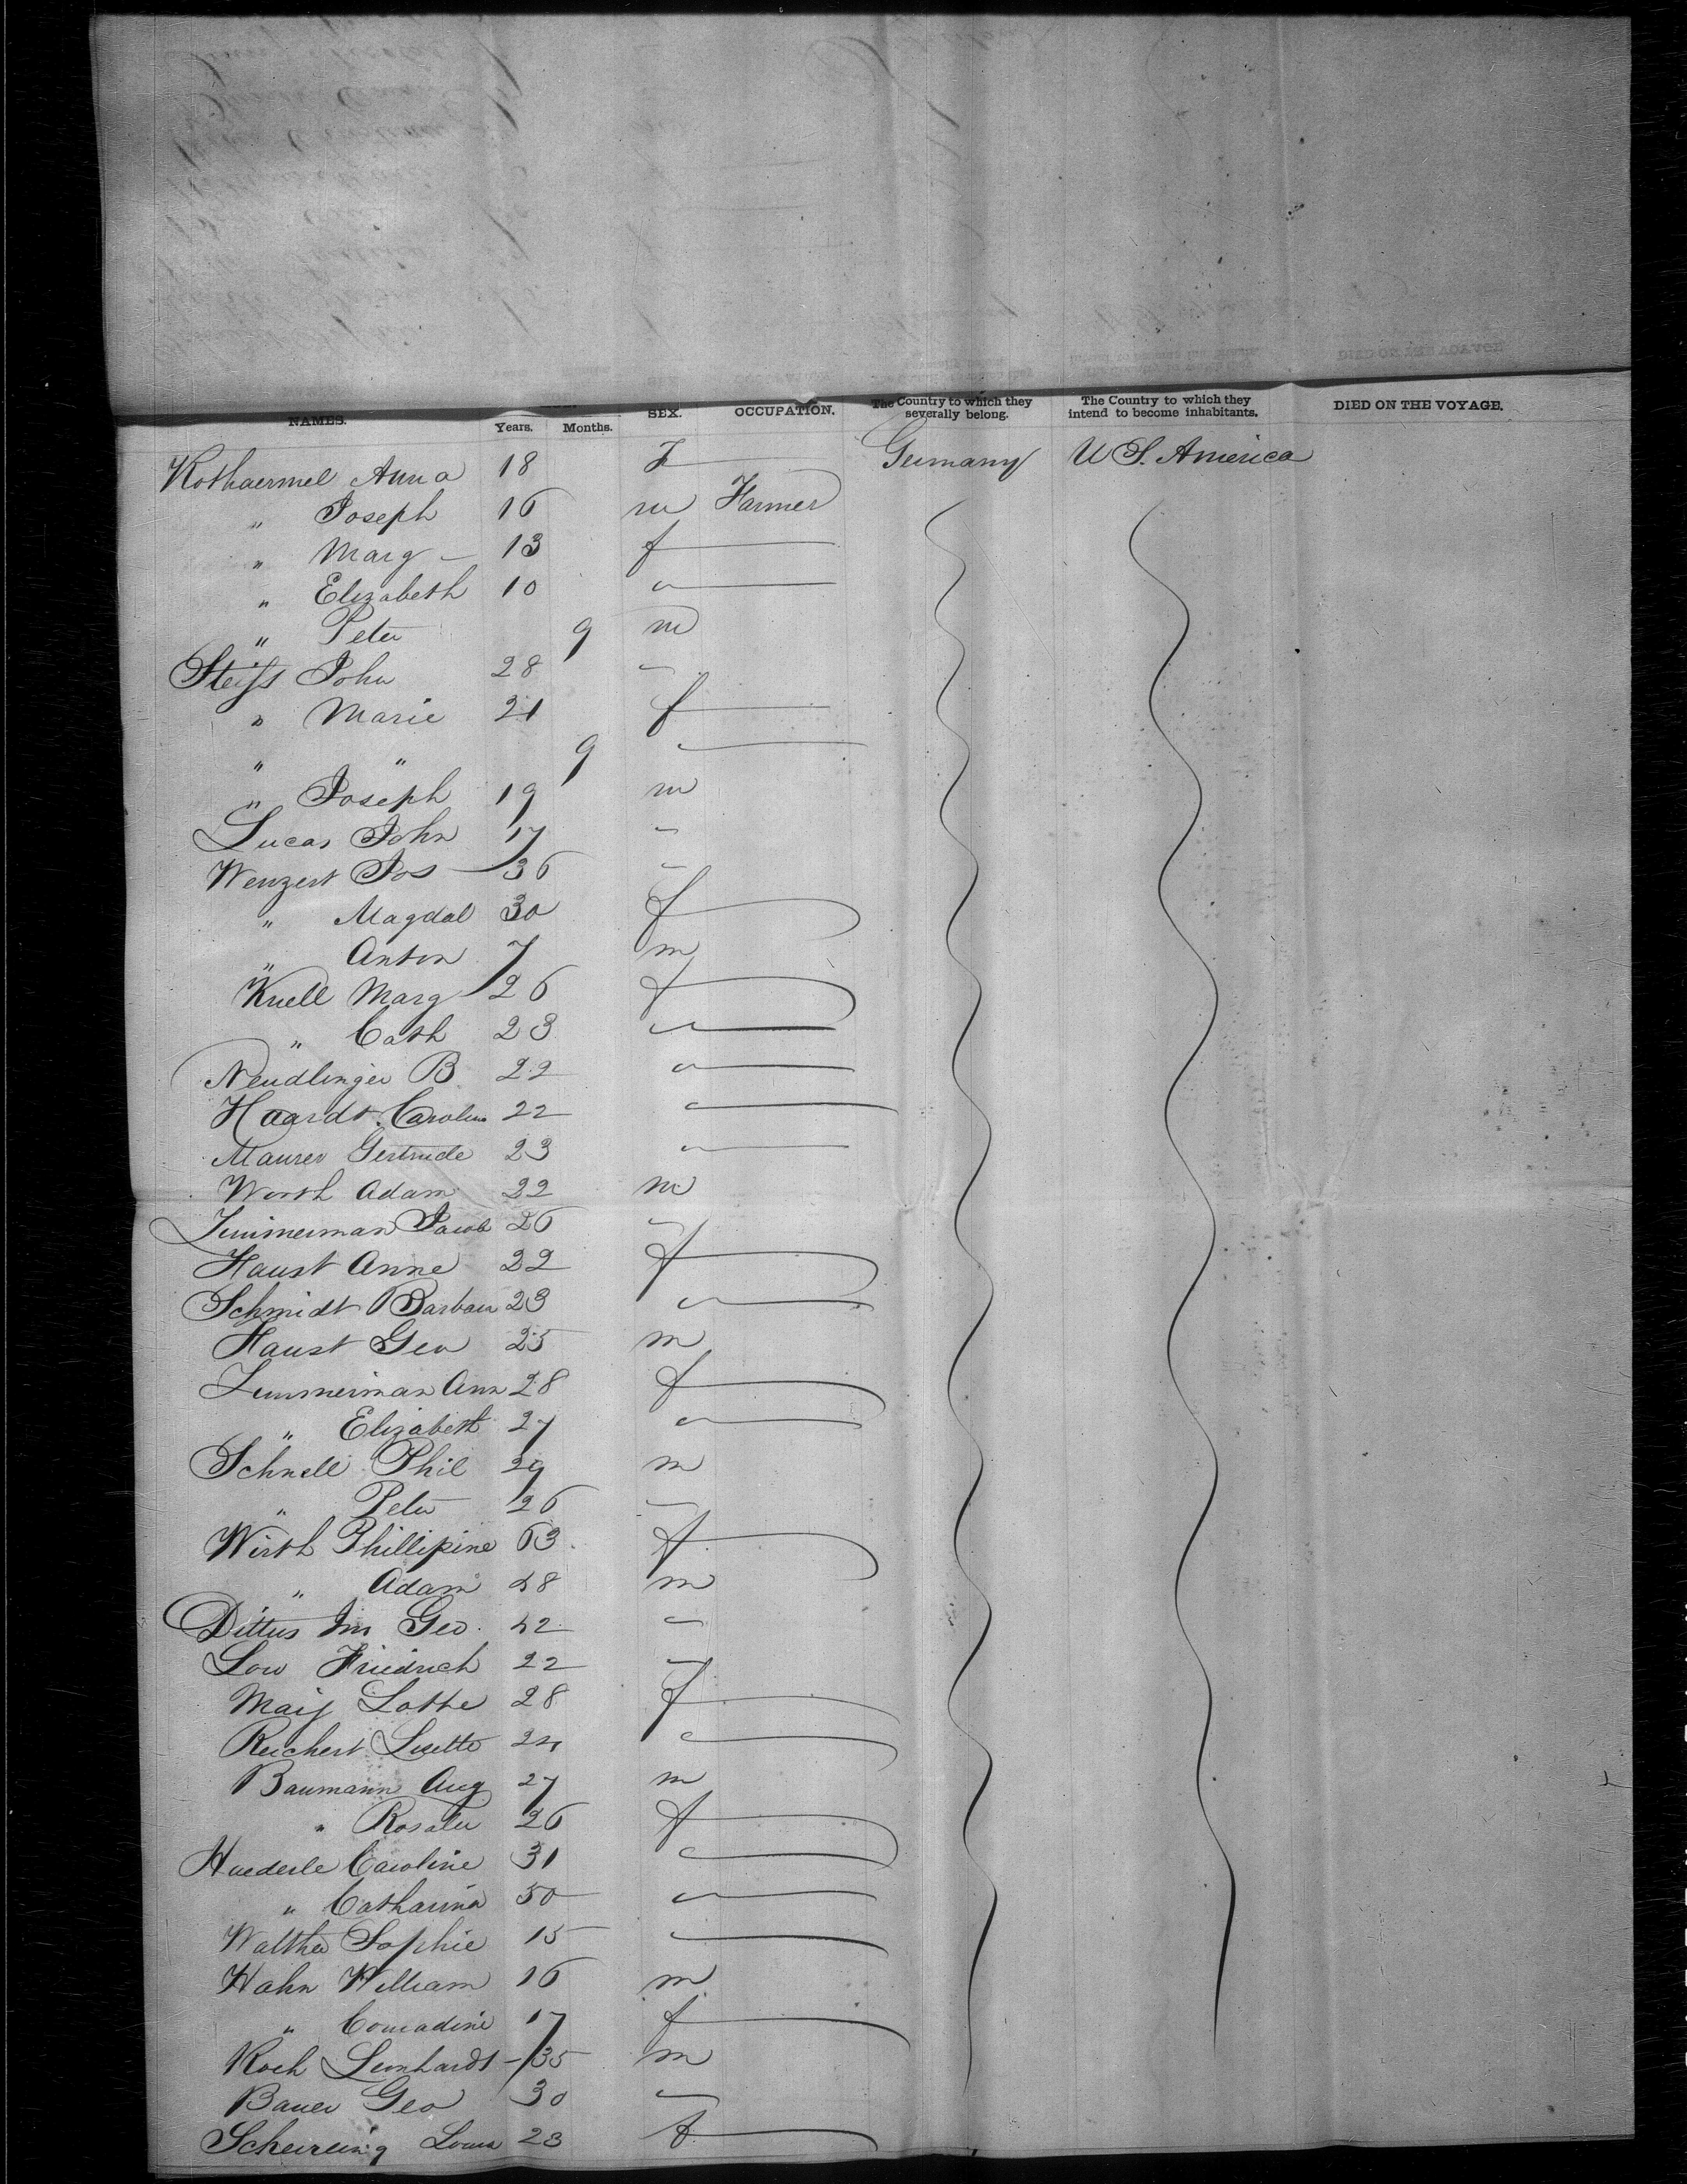 NAMES. Years. Months. SEX. OCCUPATION. The Country to which they severally belong. The Country to which they intend to become inhabitants. DIED ON THE VOYAGE.
Rothaermel Anna 18 f Germany U S. America
" Joseph 16 m Farmer
" Marg — 13 f
" Elizabeth 10 "
" Peter 9 m
Steifs John 28 "
" Marie 21 f
" " 9 "
" Joseph 19 m
Lucas John 17 "
Wenzert Jos — 36 "
" Magdal 30 f
" Anton 7 m
Knell Marg 26 f
" Cath 23 "
Neudlinger B. 22 "
Haardt. Carolin 22 "
Maurer Gertrude 23 "
Worth Adam 22 m
Zimmerman Jacob 26 "
Haust Anne 22 f
Schmidt Barbara 23 "
Haust Geo 25 m
Zimmerman Ann 28 f
" Elizabeth 27 "
Schnell Phil 29 m
" Peter 26 "
Wirth Phillipine 63 f
" Adam 28 m
Dittus Geo. 42 "
Low Friedrich 22 "
Maij Lothe 28 f
Reichert Lisette 24 "
Baumann Aug 27 m
" Rosalie 26 f
Huederle Caroline 31 "
" Catharina 50 "
Walther Sophie 15 "
Hahn William 16 m
" Conradine 17 f
Koch Leonhardt — 35 m
Bauer Geo 30 "
Scheireing Louis 23 f